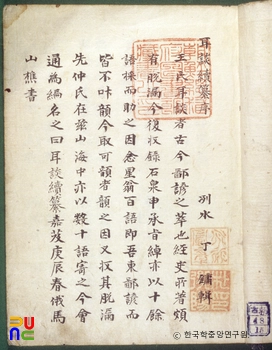 耳談續纂序
洌水 丁 鏞 輯
王氏耳談者古今鄙諺之萃也經史所著頗
有脫漏今復收錄石泉申承旨綽亦以十餘
語採而助之因念星翁百語即吾東鄙諺而
皆不叶韻今取可韻者韻之因又採其脫漏
先仲氏在玆山海中亦以數十語寄之今會
通為編名之曰耳談續纂嘉慶庚辰春俄馬
山樵書
한국학중앙연구원